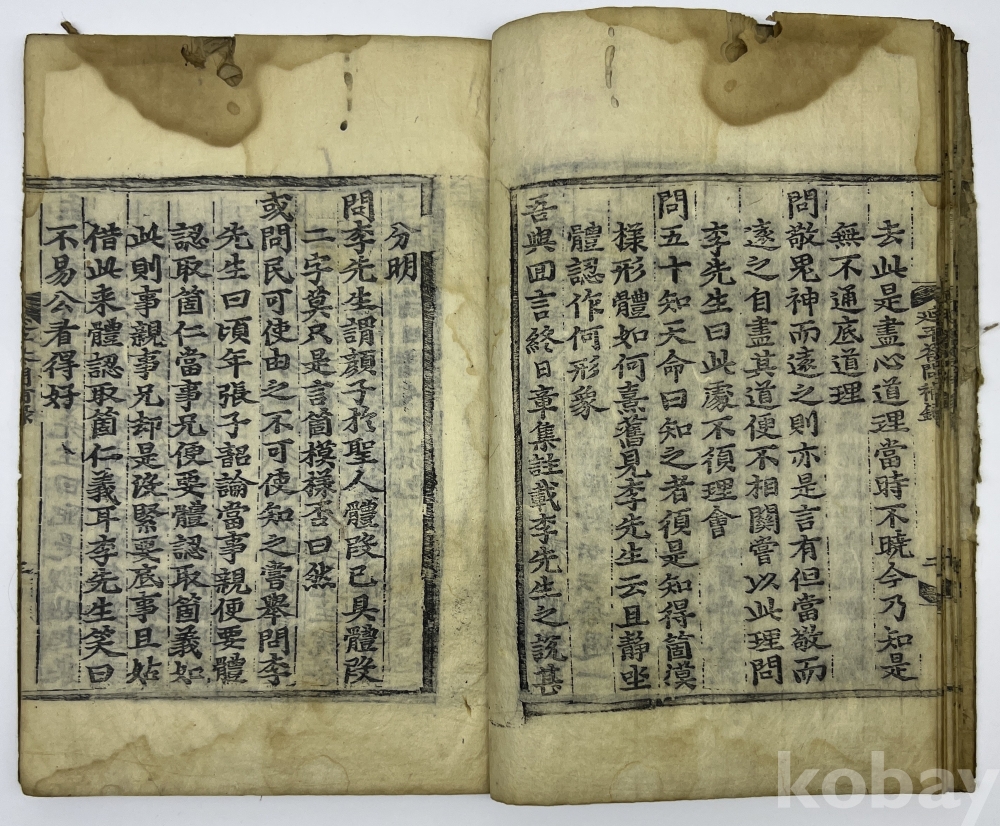 去此是盡心道理當時不曉今乃知是
無不通底道理
問敬鬼神而遠之則亦是言有但當敬而
遠之自盡其道便不相關嘗以此理問
李先生曰此處不須理會
問五十知天命曰知之者須是知得箇漠
樣形體如何熹舊見李先生云且靜坐
體認作何形象
吾與回言終日章集註載李先生之說甚
分明
問李先生謂顔子於聖人體段已具體段
二字莫只是言箇模㨾否曰然
或問民可使由之不可使知之嘗舉問李
先生曰頃年張子韶論當事親便要體
認取箇仁當事兄便要體認取箇義如
此則事親事兄却是沒緊要底事且姑
借此来體認取箇仁義耳李先生笑曰
不易公看得好
延平答問補錄
二
kobay